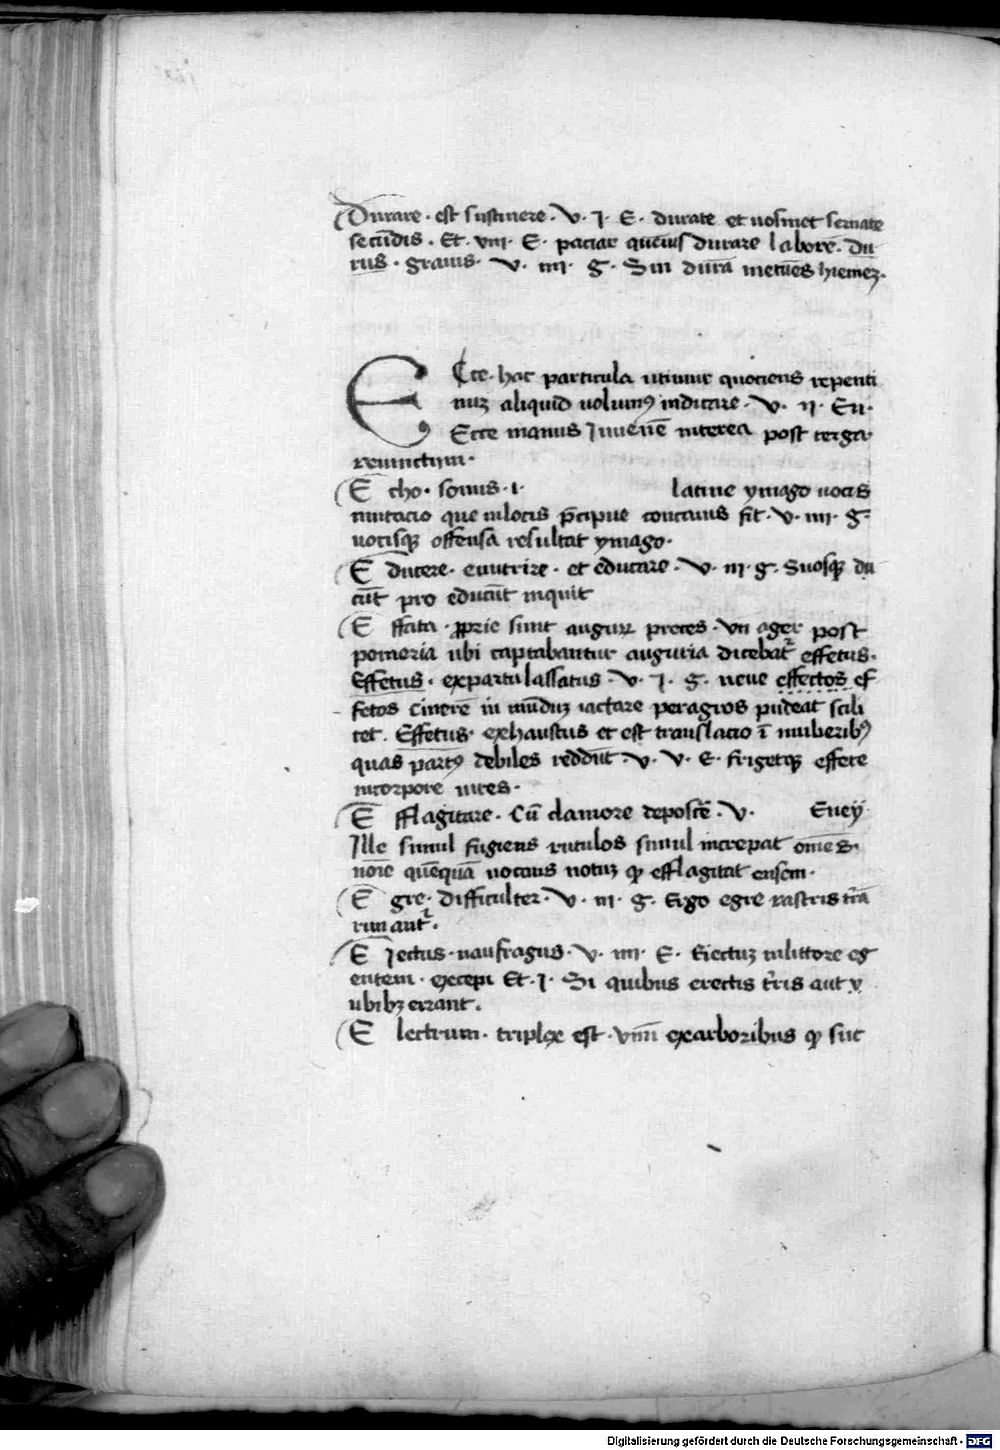 Durare · est sustinere · V · J · E · durate et uosmet seruate
secūdis · Et · viii · E · paciar quēuis durare laborē · du
rus · grauis · V · iiii · G · Sin durā metuēs hiemeʒ ·
Ecce · hac particula utimur quociens repenti
nuʒ aliquid uolumꝰ indicare · V · ii · En ·
Ecce manus Juuenē interea post terga
reuinctum ·
Echo · sonus · i · latine ymago uocis
mutacio que in locis p̄cipue concauis fit · V · iiii · G ·
uocisqꝫ offensa resultat ymago ·
Educere · enutrire · et educare · V · iii · g · Suosqꝫ du
cūt pro educūt inquit
Effata · ꝓprie sunt auguꝝ preces · Vn ager post
pomeria ubi captabantur auguria dicebat᷑ effetus ·
Effetus · ex partu lassatus · V · J · G · neue effectos ef
fetos cinerē in mūduʒ iactare per agros pudeat scili
cet · Effetus · exhaustus et est translacio ī mulieribꝰ
quas partꝰ debiles reddūt · V · V · E · frigetqꝫ effete
in corpore uires ·
Efflagitare · Cū clamore deposcē · V · Eney
Ille simul fugiens rutulos simul increpat omēs ·
noīe quēquā uocans notuʒ qꝫ efflagitat ensem ·
Egre · difficulter · V · iii · G · Ergo egre rastris t̄rā
rimant᷑ ·
Ejectus · naufragus · V · iiii · E · Eiectuʒ in littore eg
entem · excepi Et · J · Si quibus eiectis t̄ris aut v
ubibʒ errant ·
Electrum · triplex est · vnū ex arboribus qꝫ suc
Digitalisierung gefördert durch die Deutsche Forschungsgemeinschaft - DFG